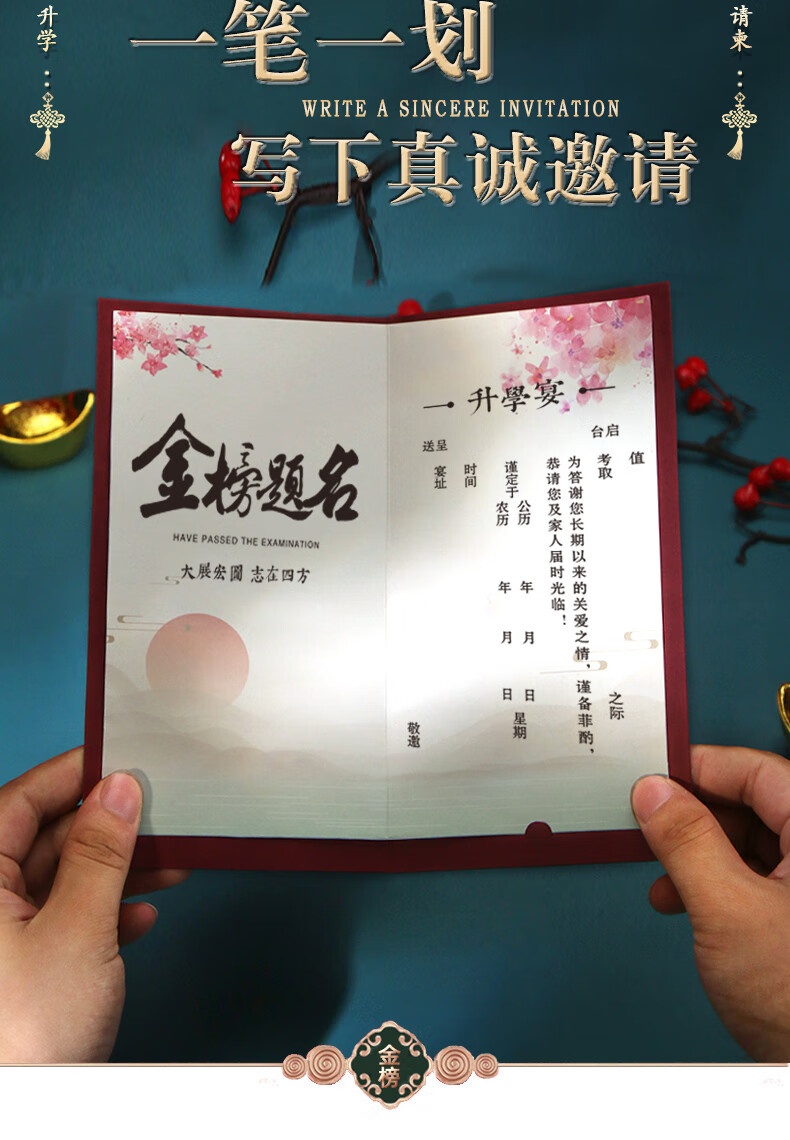 升学
请柬
一笔一划
WRITE A SINCERE INVITATION
写下真诚邀请
金榜题名
HAVE PASSED THE EXAMINATION
大展宏圖 志在四方
升學宴
台启
值
考取
之际
为答谢您长期以来的关爱之情，谨备菲酌，
恭请您及家人届时光临！
谨定于
公历 年 月 日
农历 年 月 日
星期
时间
宴址
呈送
敬邀
金榜